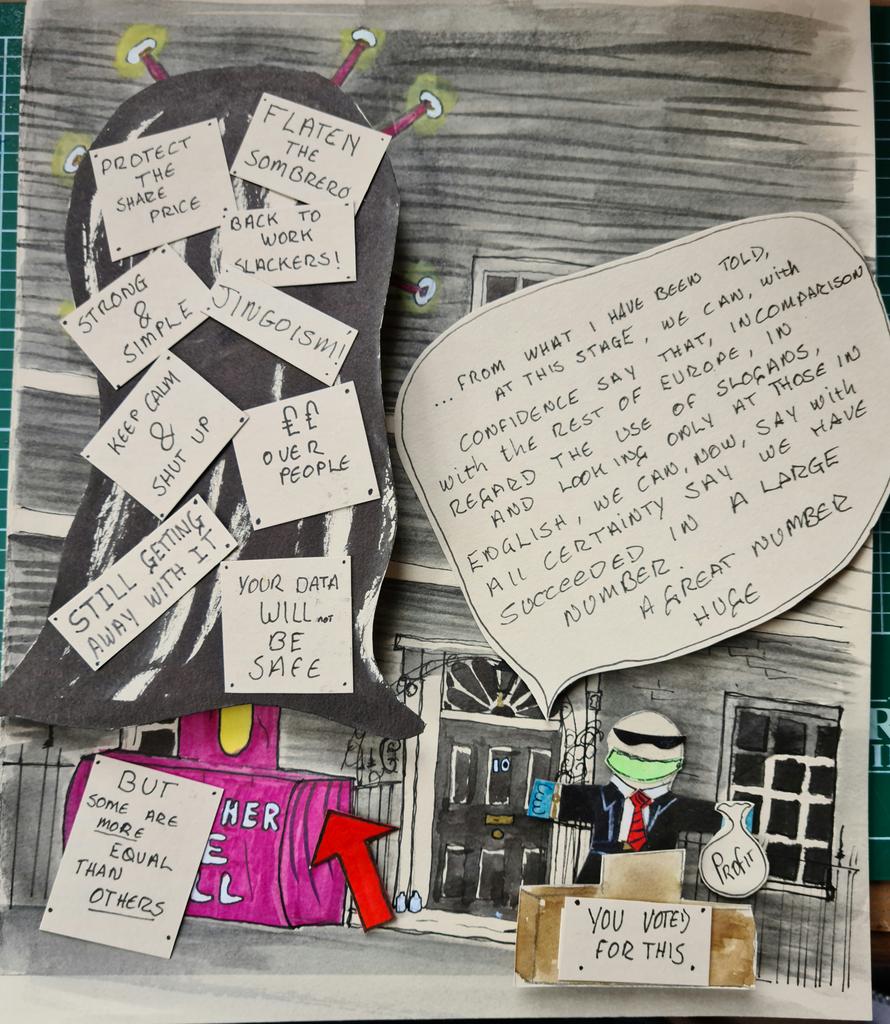 PROTECT
THE
SHARE
PRICE
FLATEN
THE
SOMBRERO
BACK TO
WORK
SLACKERS!
STRONG
&
SIMPLE
JINGOISM!
KEEP CALM
&
SHUT UP
££
OVER
PEOPLE
STILL GETTING
AWAY WITH IT
YOUR DATA
WILL NOT
BE
SAFE
... FROM WHAT I HAVE BEEN TOLD,
AT THIS STAGE, WE CAN, with
CONFIDENCE SAY THAT, IN COMPARISON
with the REST OF EUROPE, IN
REGARD THE USE OF SLOGANS,
AND LOOKING ONLY AT THOSE IN
ENGLISH, WE CAN, NOW, SAY with
All CERTAINTY SAY WE HAVE
SUCCEEDED IN A LARGE
NUMBER. A GREAT NUMBER
HUGE
BUT
SOME ARE
MORE
EQUAL
THAN
OTHERS
HER
E
LL
10
PROFIT
YOU VOTED
FOR THIS